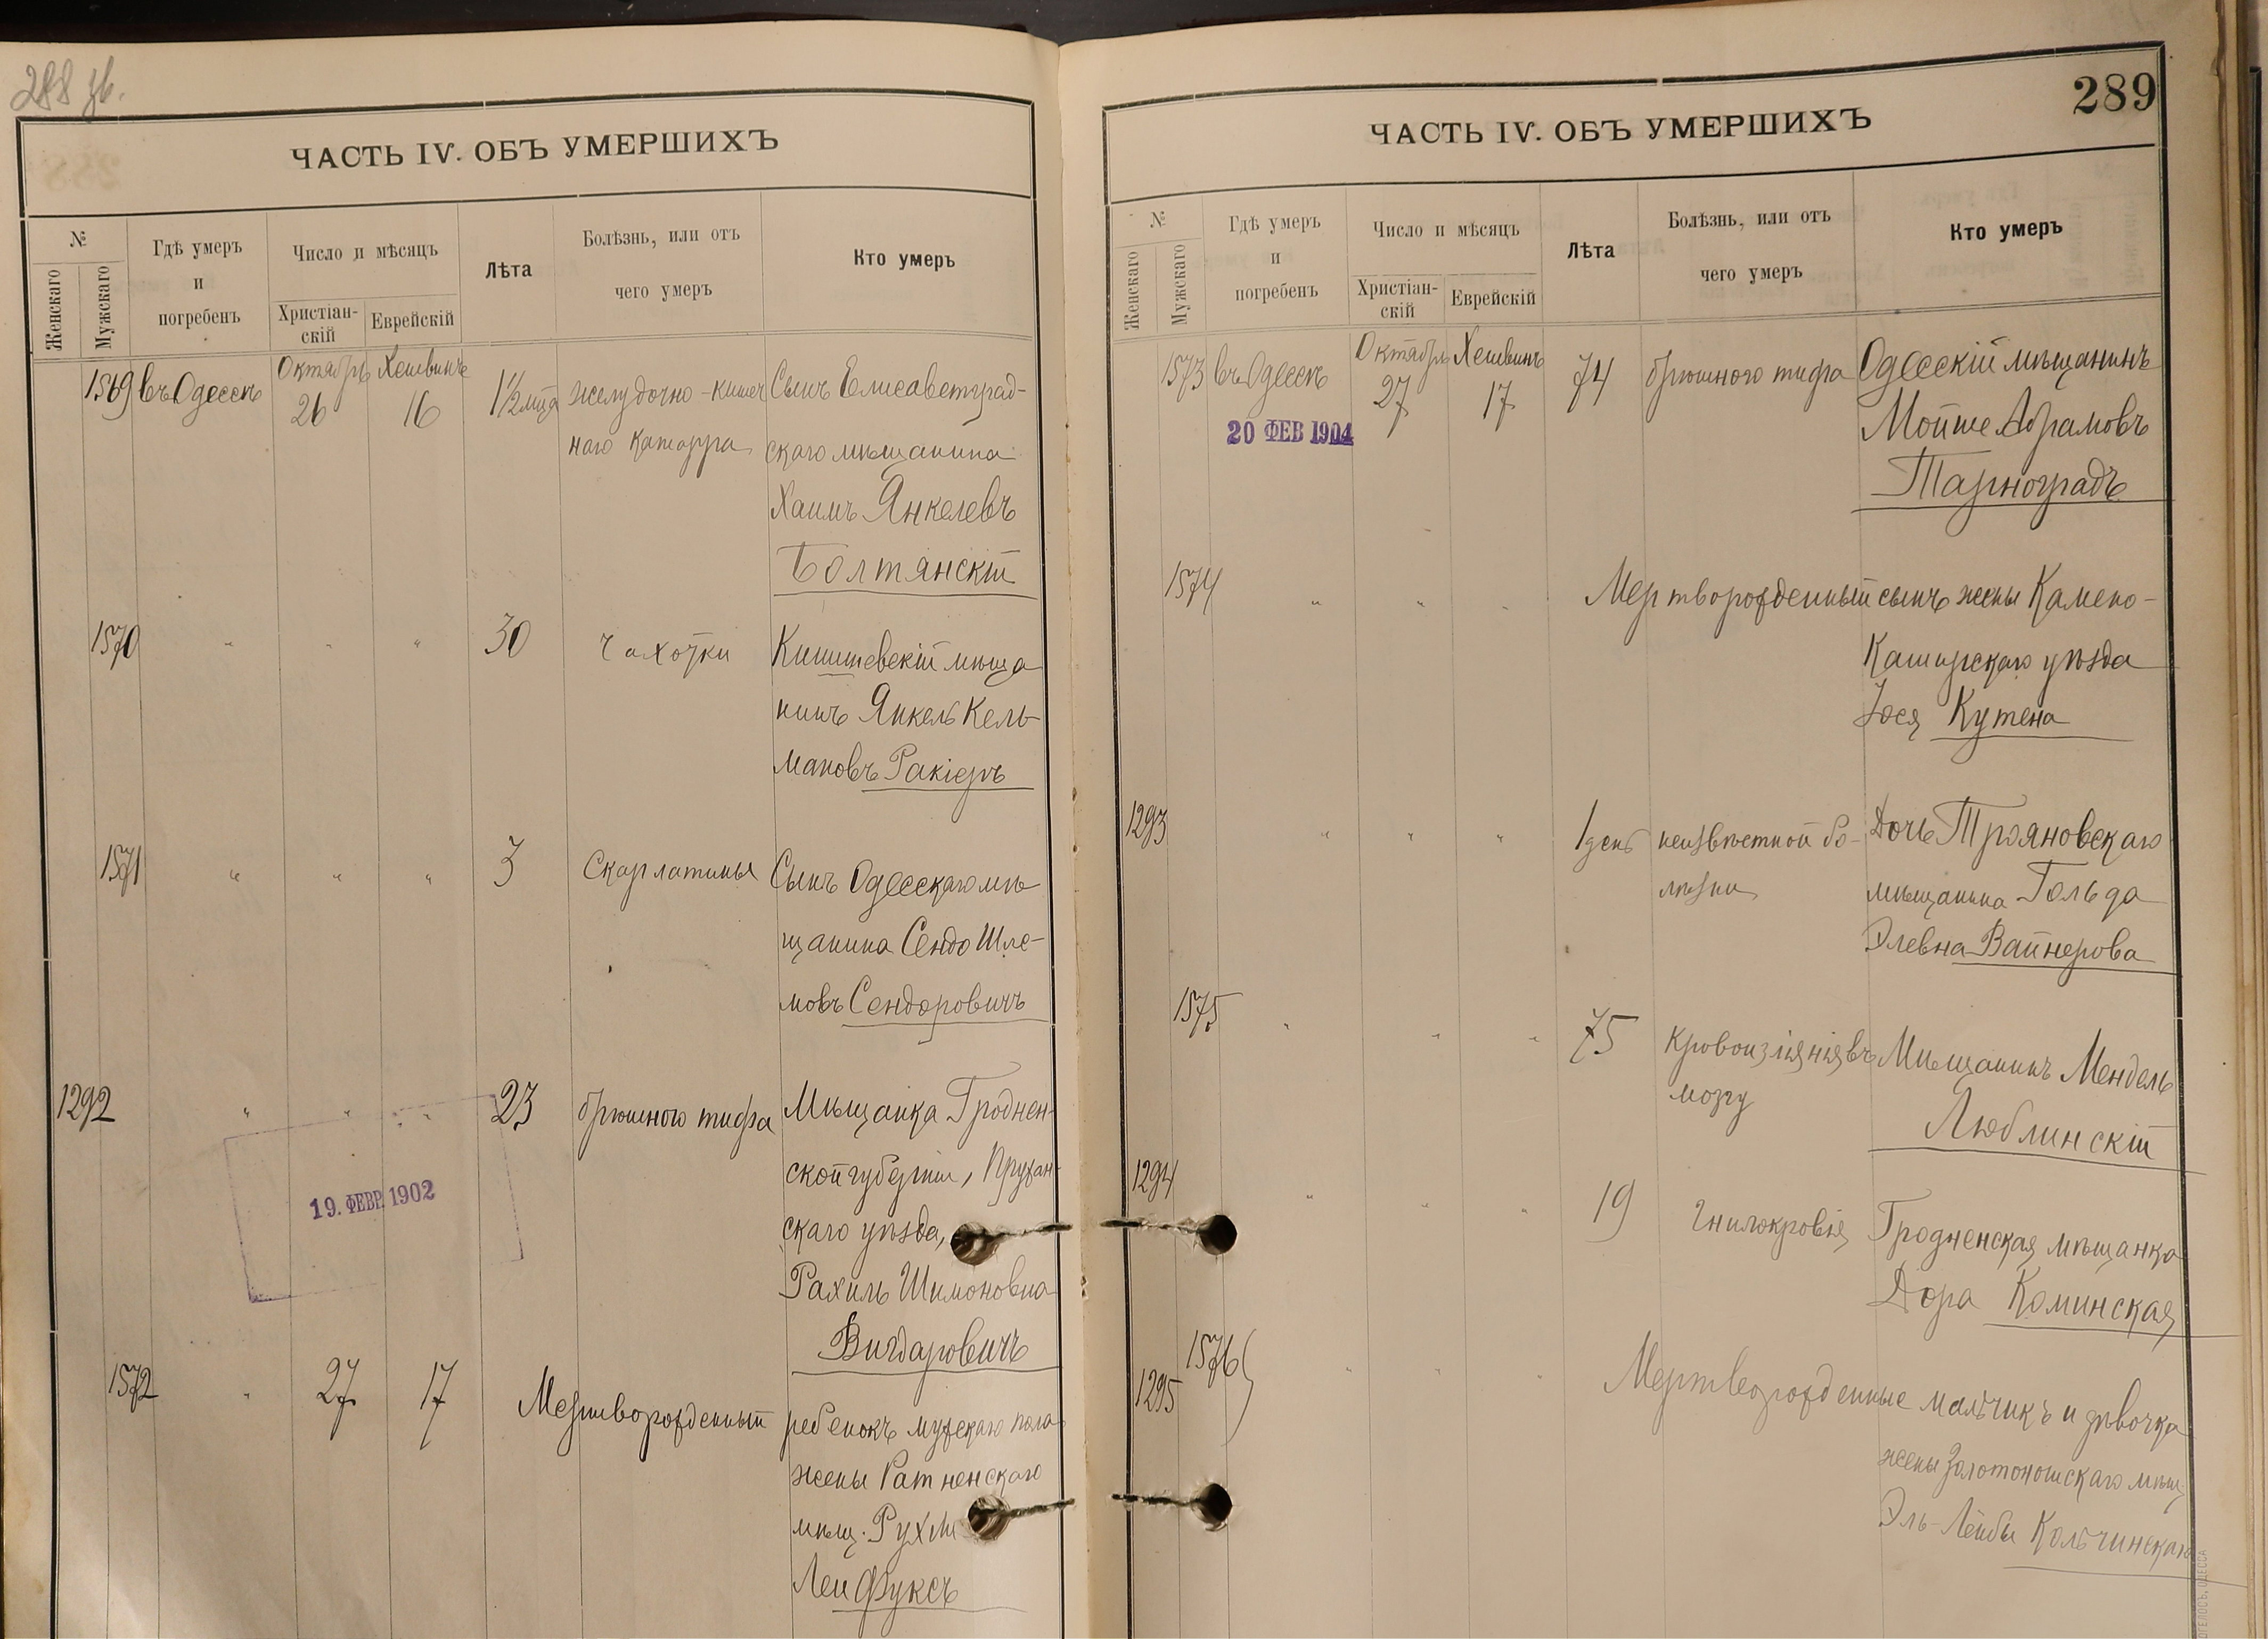 288 зв.
ЧАСТЬ IV. ОБЪ УМЕРШИХЪ
№
Женскаго
Мужскаго
Гдѣ умеръ
и
погребенъ
Число и мѣсяцъ
Христіан-
скій
Еврейскій
Лѣта
Болѣзнь, или отъ
чего умеръ
Кто умеръ
1569 въ Одессѣ Октябрь 26 Хешвинъ 16 1½ мца желудочно-кишеч Сынъ Елисаветград-
наго катарра скаго мѣщанина
Хаимъ Янкелевъ
Болтянскій
1570 " " " 30 чахотки Кишиневскій мѣща
нинъ Янкель Кель-
мановъ Ракіеръ
1571 " " " 3 Скарлатины Сынъ Одесскаго мѣ
щанина Сендо Шле-
мовъ Сендеровичъ
1292 " " " 23 брюшного тифа Мѣщанка Гроднен-
ской губерніи, Пружан-
скаго уѣзда,
19. ФЕВР. 1902
Рахиль Шимоновна
Вигдаровичъ
1572 " 27 17 Мертворожденный ребенокъ мужскаго пола
жены Ратненскаго
мѣщ. Рухли
Леи Фуксъ
289
ЧАСТЬ IV. ОБЪ УМЕРШИХЪ
№
Женскаго
Мужскаго
Гдѣ умеръ
и
погребенъ
Число и мѣсяцъ
Христіан-
скій
Еврейскій
Лѣта
Болѣзнь, или отъ
чего умеръ
Кто умеръ
1573 въ Одессѣ Октябрь 27 Хешвинъ 17 74 брюшного тифа Одесскій мѣщанинъ
20 ФЕВ 1904
Мойше Абрамовъ
Тарноградъ
1574 " " " Мертворожденный сынъ жены Камено-
Каширскаго уѣзда
Іося Кутена
1293 " " " 1 день неизвѣстной бо- Дочь Трояновскаго
лѣзни мѣщанина Гольда
Элевна Вайнерова
1575 " " " 75 Кровоизліянія въ Мѣщанинъ Мендель
мозгу Люблинскій
1294 " " " 19 гнилокровія Гродненская мѣщанка
Дора Коминская
1576
1295 " " " Мертворожденные мальчикъ и дѣвочка
жены Золотоношскаго мѣщ.
Эль-Лейбы Кольчинскаго